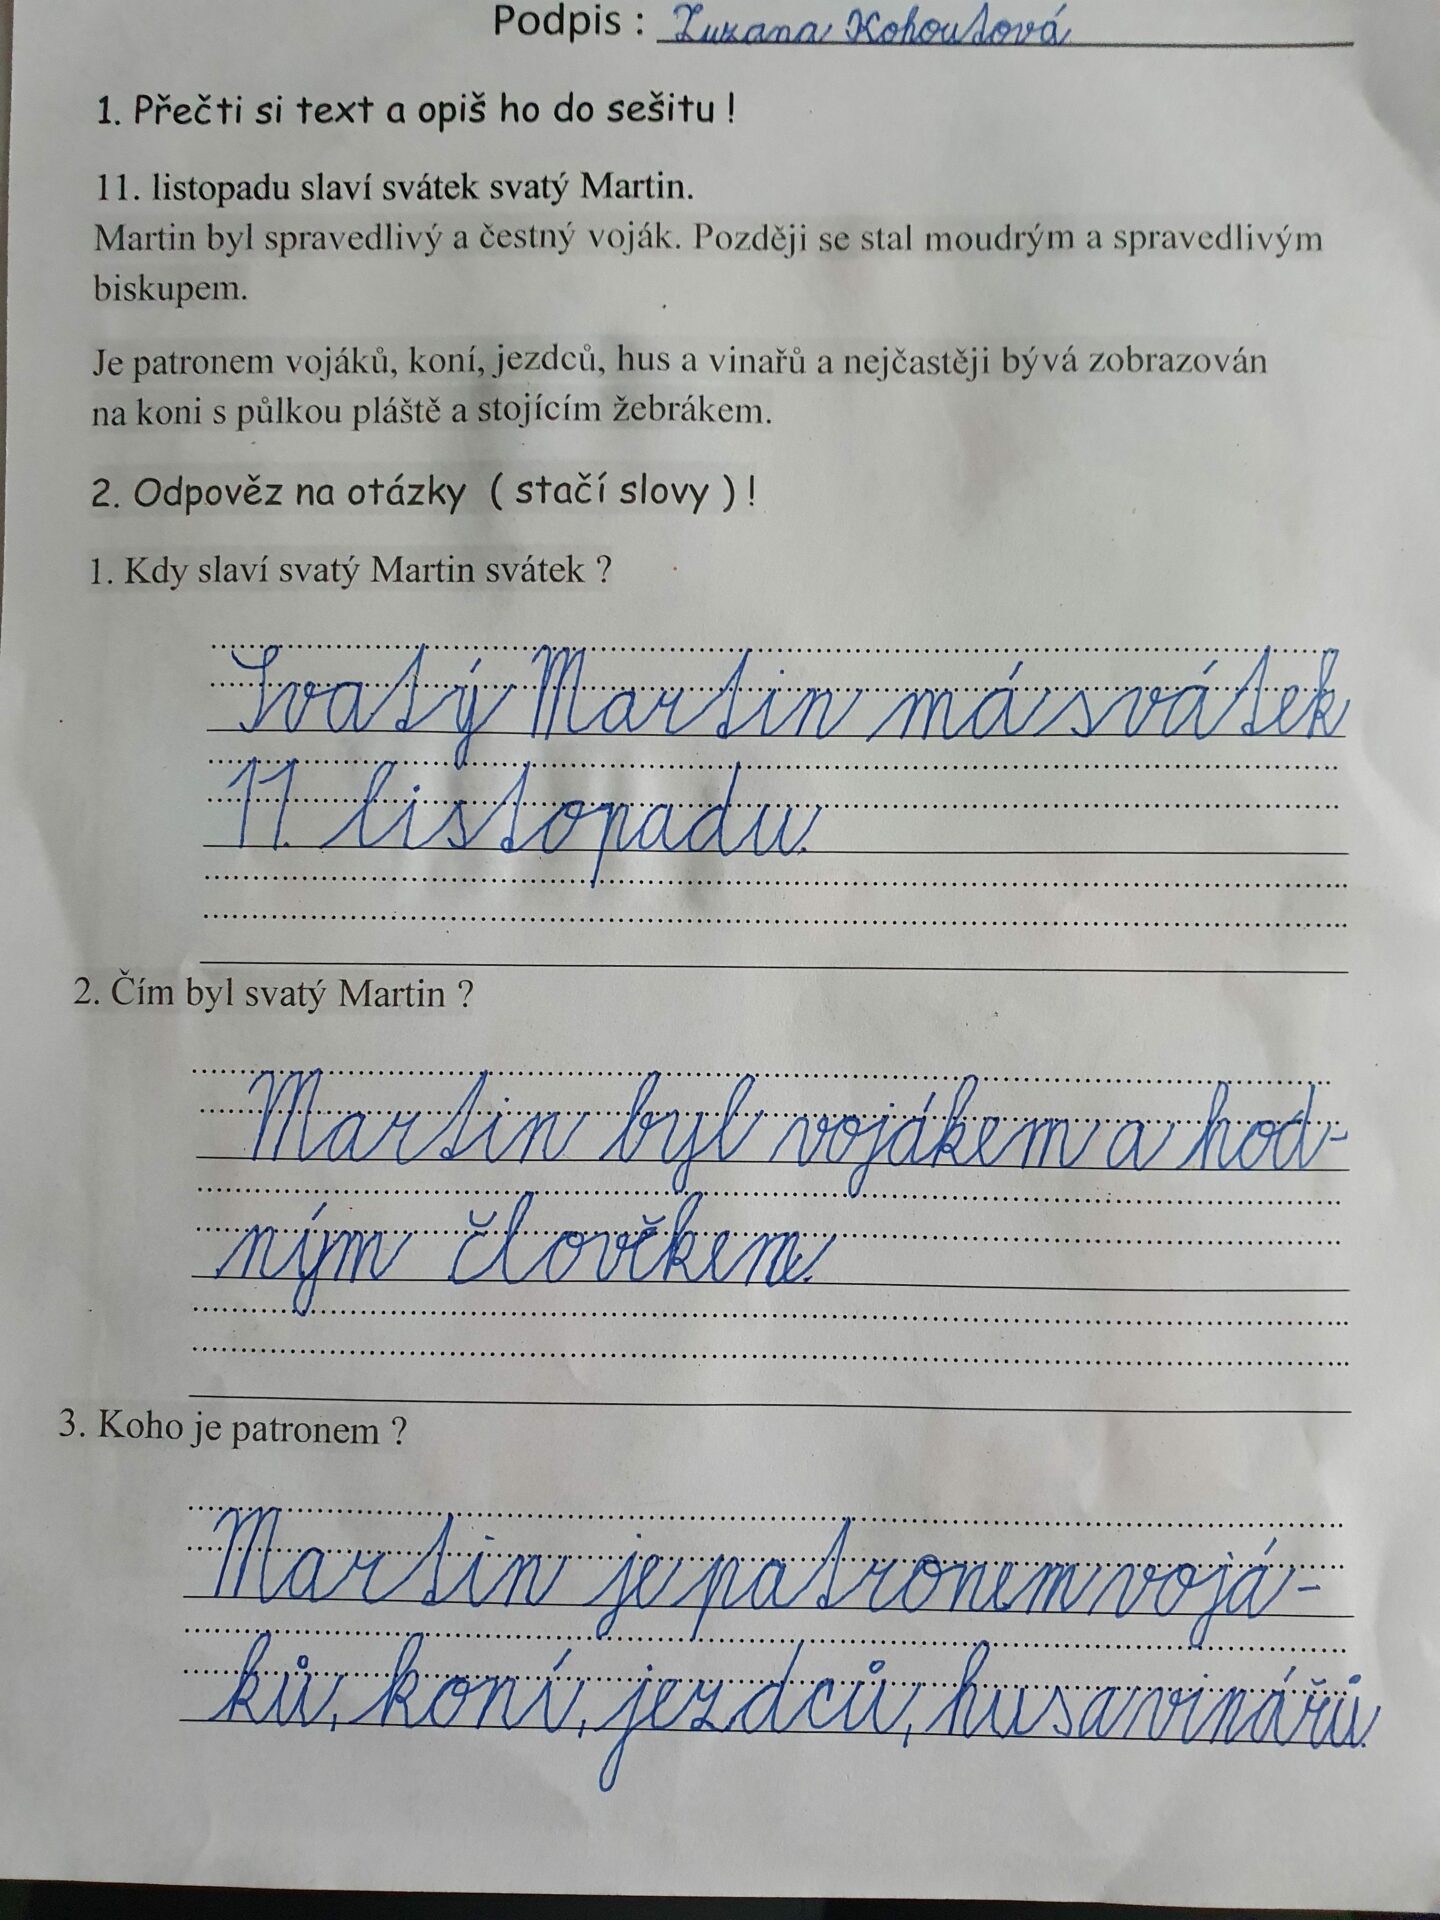 Podpis : Zuzana Kohoutová
1. Přečti si text a opiš ho do sešitu !
11. listopadu slaví svátek svatý Martin.
Martin byl spravedlivý a čestný voják. Později se stal moudrým a spravedlivým
biskupem.
Je patronem vojáků, koní, jezdců, hus a vinařů a nejčastěji bývá zobrazován
na koni s půlkou pláště a stojícím žebrákem.
2. Odpověz na otázky ( stačí slovy ) !
1. Kdy slaví svatý Martin svátek ?
Svatý Martin má svátek
11. listopadu.
2. Čím byl svatý Martin ?
Martin byl vojákem a hod-
ným člověkem.
3. Koho je patronem ?
Martin je patronem vojá-
ků, koní, jezdců, hus a vinářů.